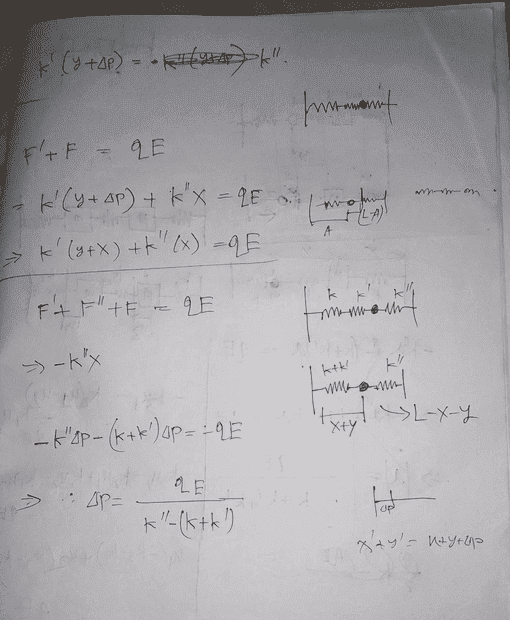 k' (y + ΔP) = k''.
F' + F = qE
= k' (y + ΔP) + k'' x = qE
A (L-A)
⇒ k' (y+x) + k'' (x) = qE
F' + F'' + F = qE
k k' k''
⇒ -k'' x
k+k' k''
x+y → L-x-y
-k'' ΔP - (k+k') ΔP = -qE
⇒ ∴ ΔP = qE / k'' - (k+k')
ΔP
x' + y' = x+y+ΔP